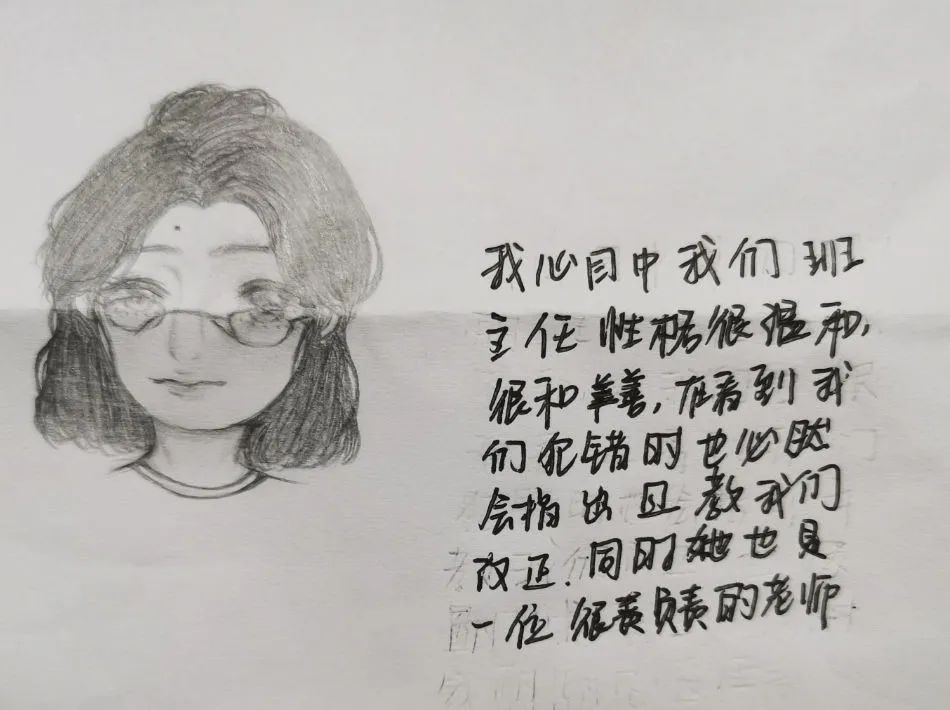 我心目中我们班
主任性格很温和,
很和善,在看到我
们犯错时也必然
会指出且教我们
改正.同时她也是
一位很负责的老师.